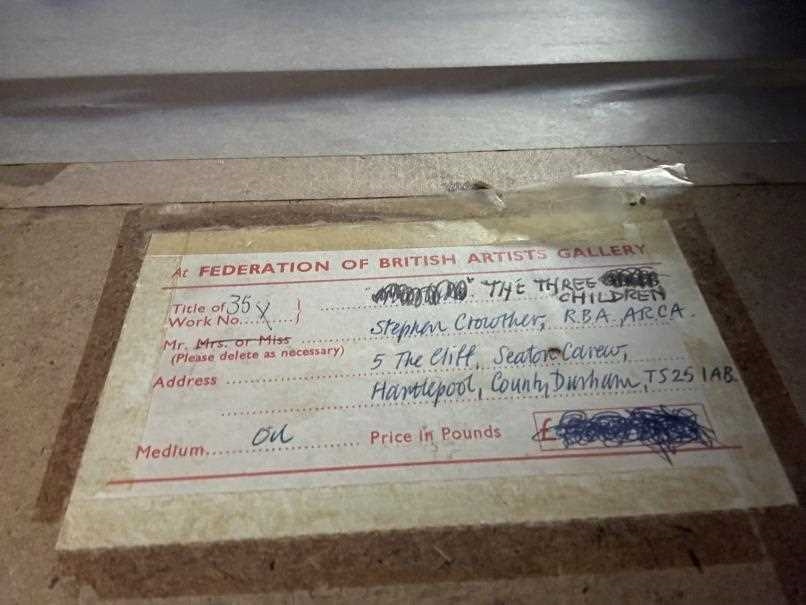 At FEDERATION OF BRITISH ARTISTS GALLERY
Title of 35 THE THREE
Work No. } CHILDREN
Mr. Mrs. or Miss Stephen Crowther, RBA ARCA.
(Please delete as necessary)
5 The Cliff, Seaton Carew,
Address
Hartlepool, County Durham, TS25 1AB.
Medium oil Price in Pounds £